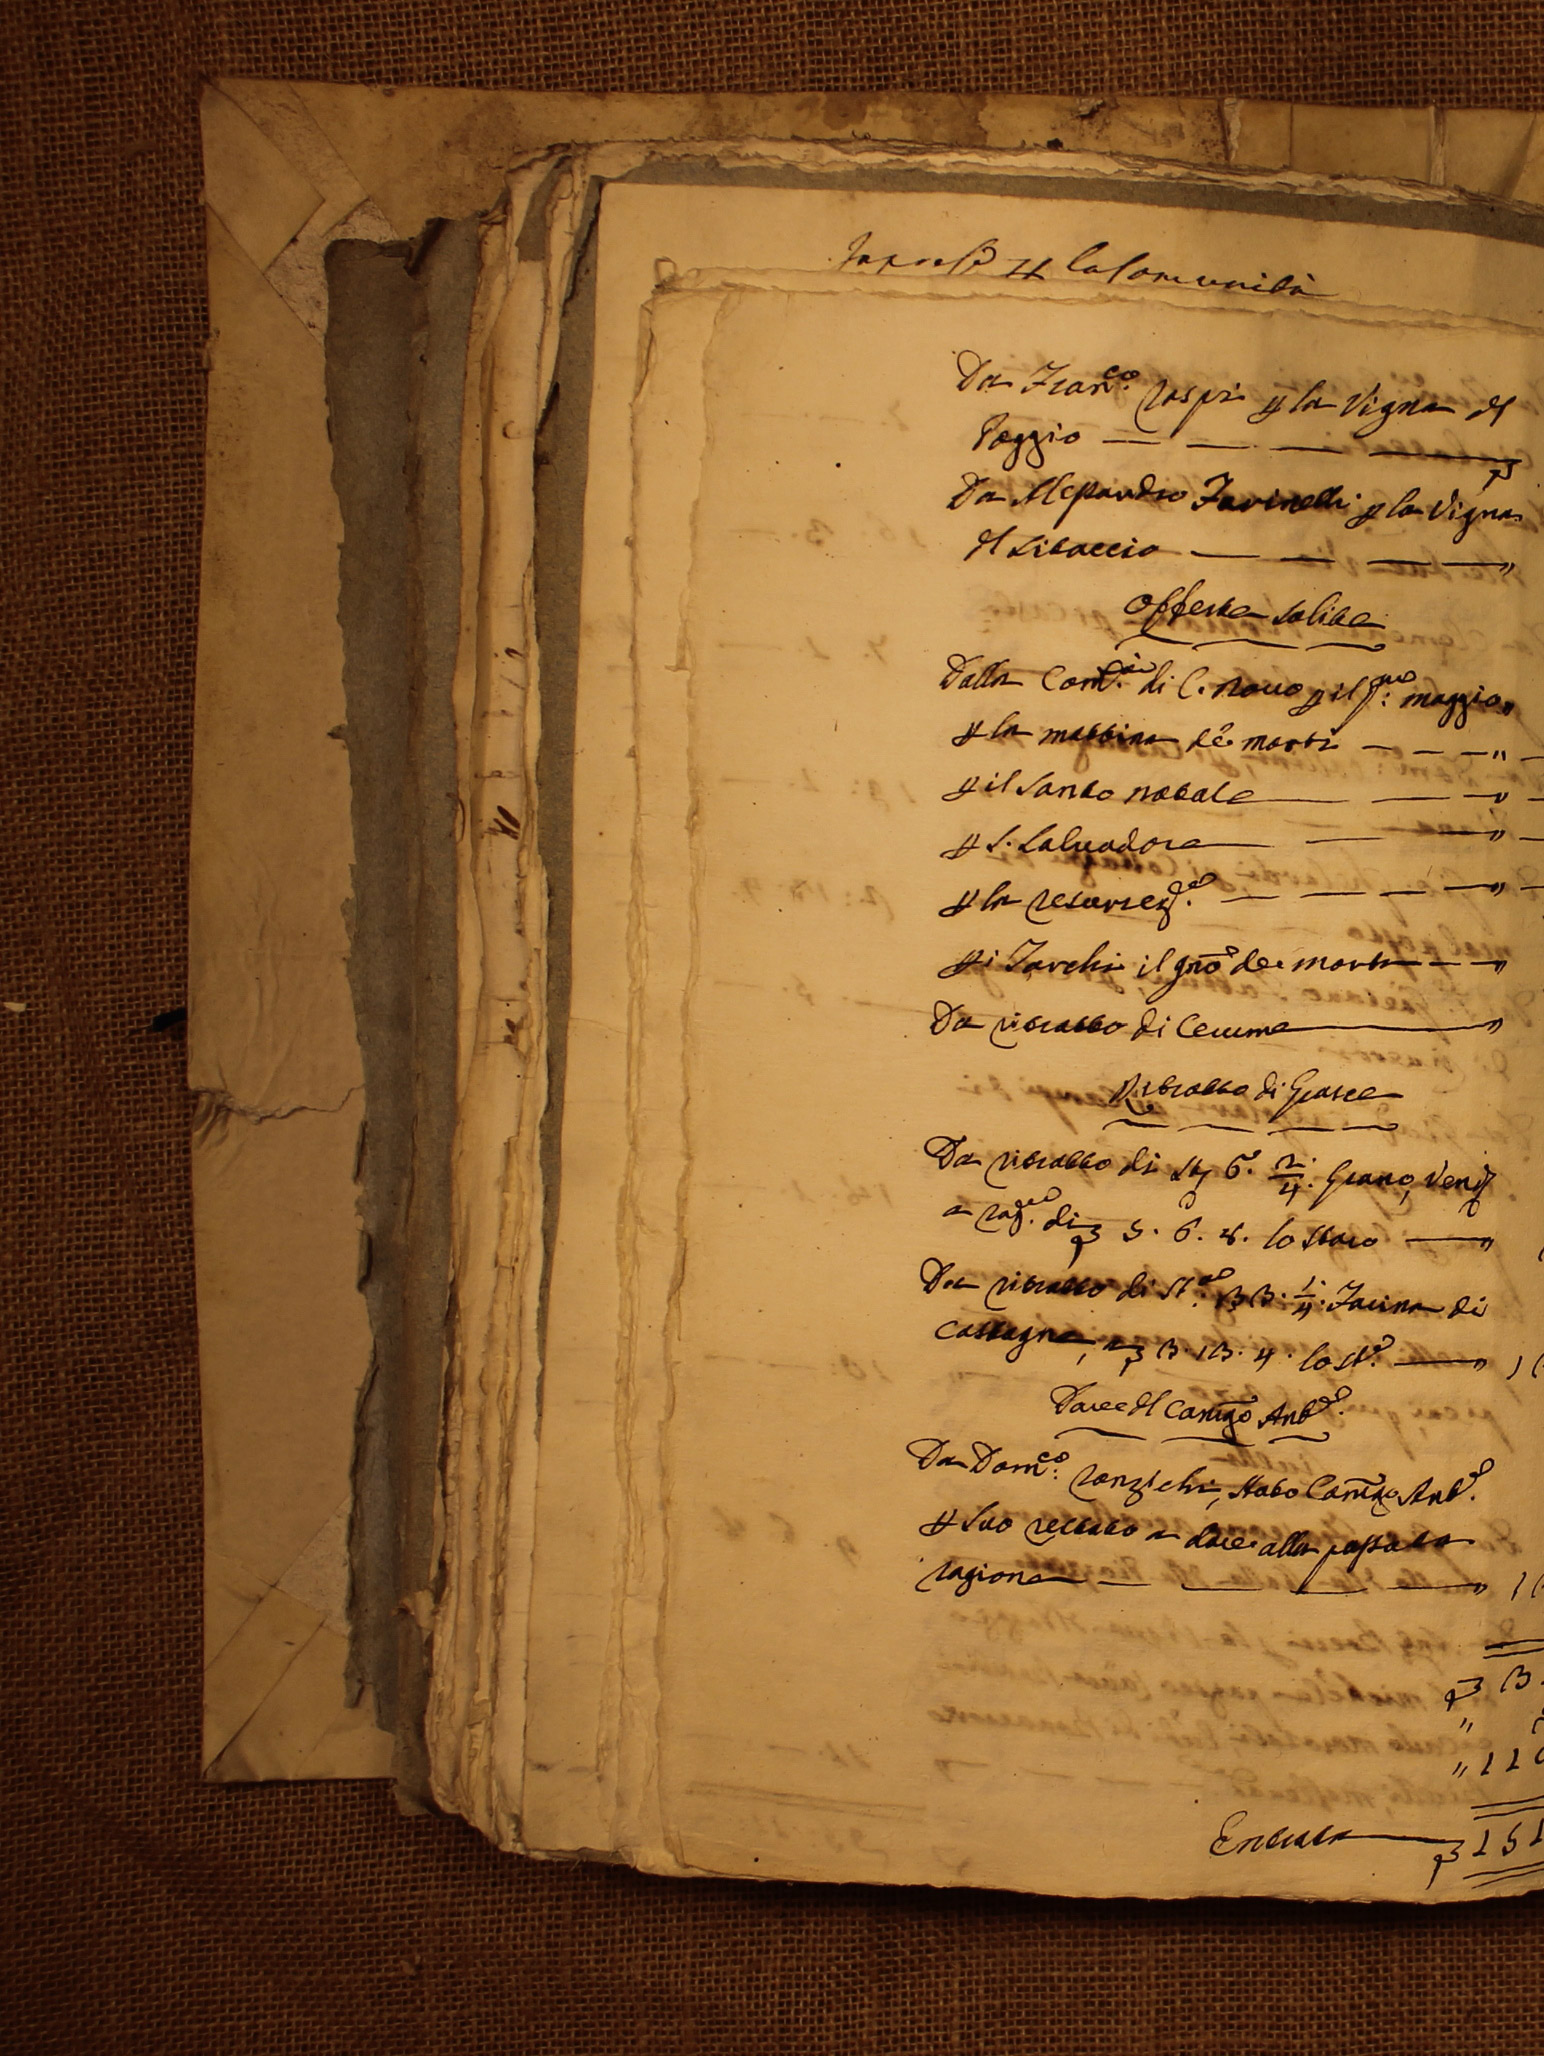 la Comunità
Da Fran.co Raspi p la Vigna del
Poggio
Da Alessandro Farinelli p la Vigna
del
Offerte Solite
Dalla Com.tà di C. novo p il p.mo maggio
p la mattina de morti
p il Santo natale
p S. Salvadore
p la resurrez.e
p i Torchi il gno de morti
Da ritratto di Cerume
Ritratto di Grasce
Da ritratto di St. 6. 2/4. Grano, Vend.
a rag.ne di 5. 6. 8. lo staro
Da ritratto di St.a 33. 1/4. Farina di
Castagne, a 3. 13. 4. lo St.o
Dare del Camgo Ant.e
Da Dom.co Ronzichi, stato Camgo Ant.e
p suo restato a dare alla passata
ragione
Entrata 151